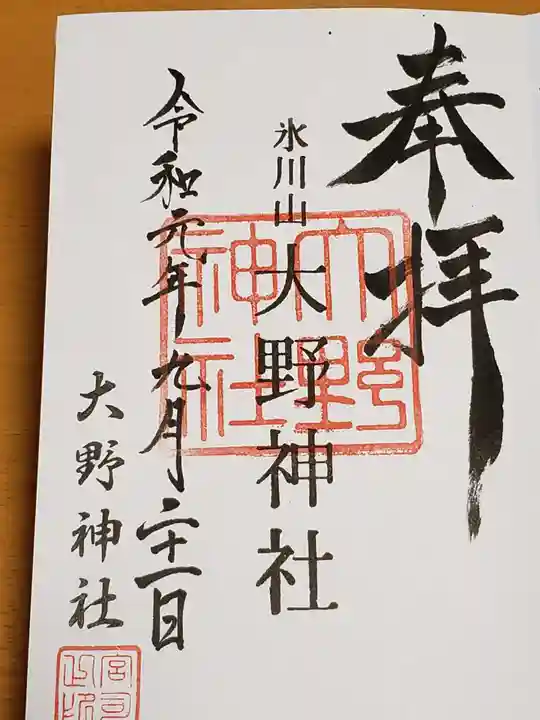 奉拝
氷川山
大野神社
大野神社
令和元年九月二十一日
大野神社